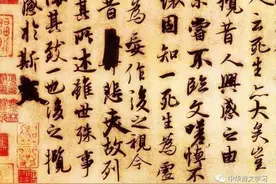 云死生亦大矣豈
攬昔人興感之由
嘗不臨文嗟悼不
懷固知一死生為虛
為妄作後之視今
悲夫故列
其所述雖世殊事
其致一也後之攬
感於斯
中华语文学习